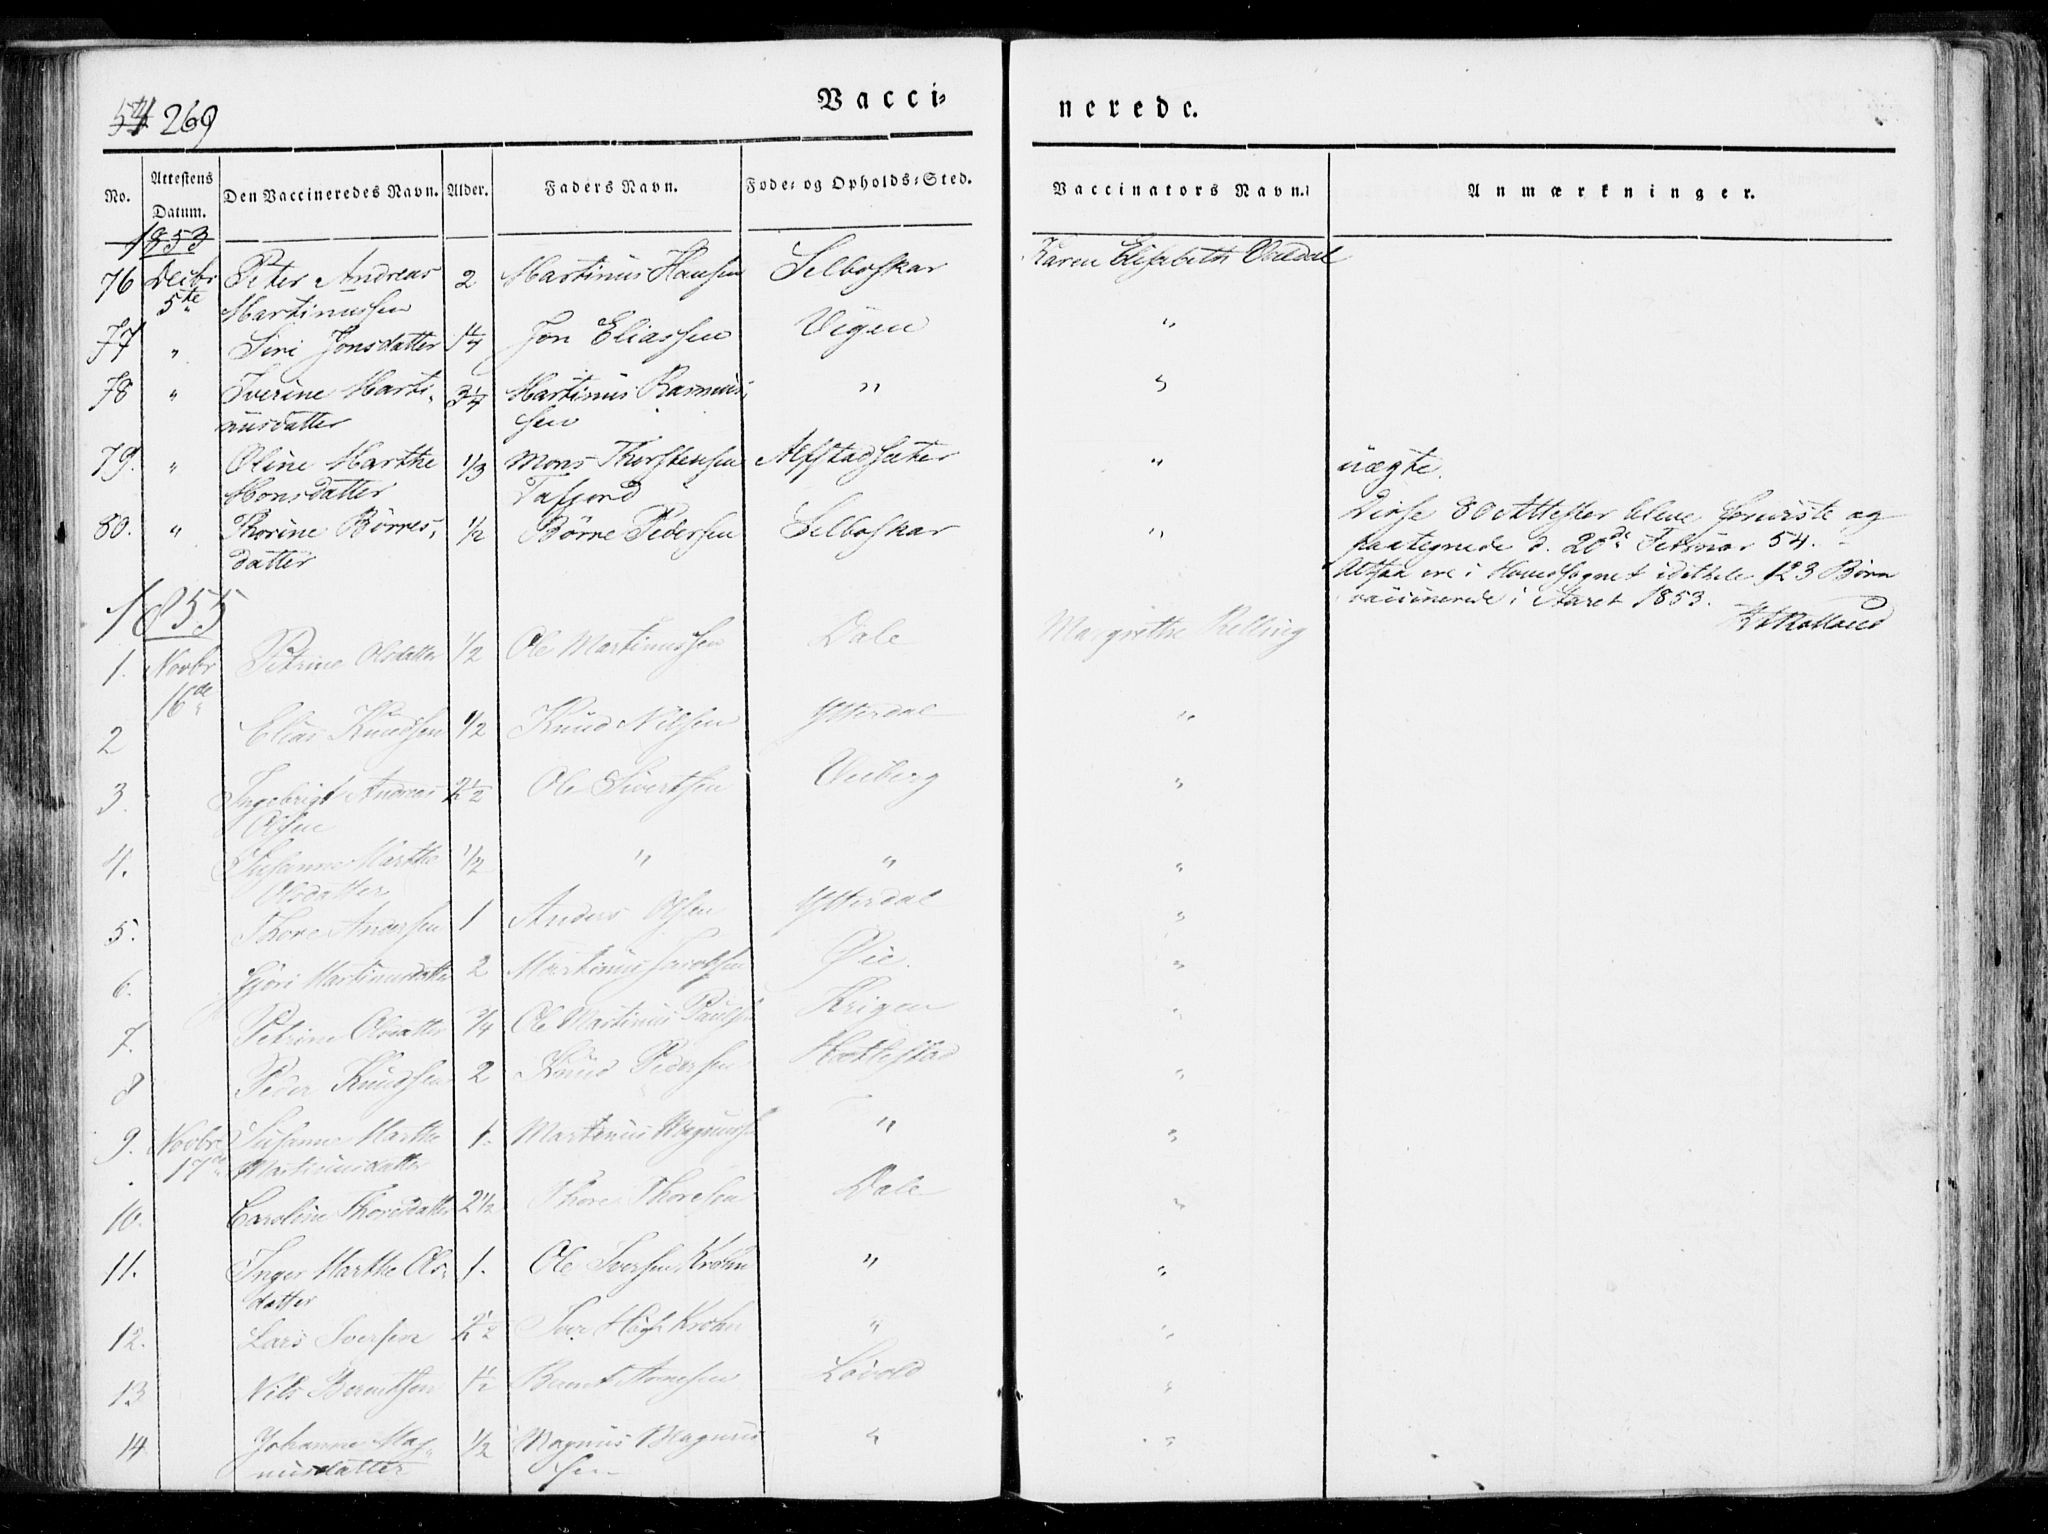 54 269
Vacci- nerede.
No. Attestens Datum. Den Vaccineredes Navn. Alder. Faders Navn. Føde- og Opholds-Sted. Vaccinators Navn. Anmærkninger.
1853
76 Decbr 5te Peter Andreas Martinussen 2 Martinus Hansen Selboskar Karen Elisabeth
77 " Siri Jonsdatter 1 1/4 Jon Eliassen Vigen "
78 " Iverine Martinusdatter 3 1/4 Martinus Rasmussen " "
79. " Oline Marthe Monsdatter 1/3 Mons Thorstensen Tafjord Alfstadsæter " uægte.
80. " Thorine Børresdatter 1/2 Børre Pedersen Selboskar "
Disse 80 Attester bleve foreviste og
paategnede d. 20de Februar 54.
Altsaa ere i Hovedsognet idethele 123 Børn
vaccinerede i Aaret 1853.
1855
1. Novbr 16de Petrine Olsdatter 1/2 Ole Martinussen Dale Margrethe Relling
2 Elias Knudsen 1/2 Knud Nilsen Ytterdal "
3. Ingebrigt Andreas Olsen 2 1/2 Ole Sivertsen Veiberg "
4. Susanne Marthe Olsdatter 1/2 " " "
5. Thore Andersen 1 Anders Olsen Ytterdal "
6. Gjøri Martinusdatter 2 Martinus Jacobsen Øie. "
7. Petrine Olsdatter 3/4 Ole Martinus Paulsen Krigen "
8 Peder Knudsen 2 Knud Pedersen Hattestad "
9. Novbr 17de Susanne Marthe Martinusdatter 1. Martinus Magnussen " "
10. Caroline Thoresdatter 2 1/2 Thore Thoresen Dale "
11. Inger Marthe Olsdatter 1. Ole Iversen Krohn " "
12. Lars Iversen 2 1/2 Iver Krohn " "
13 Nils Berntsen 1 1/2 Bernt Løvold "
14 Johanne Magnusdatter 1/2 Magnus Magnussen " "